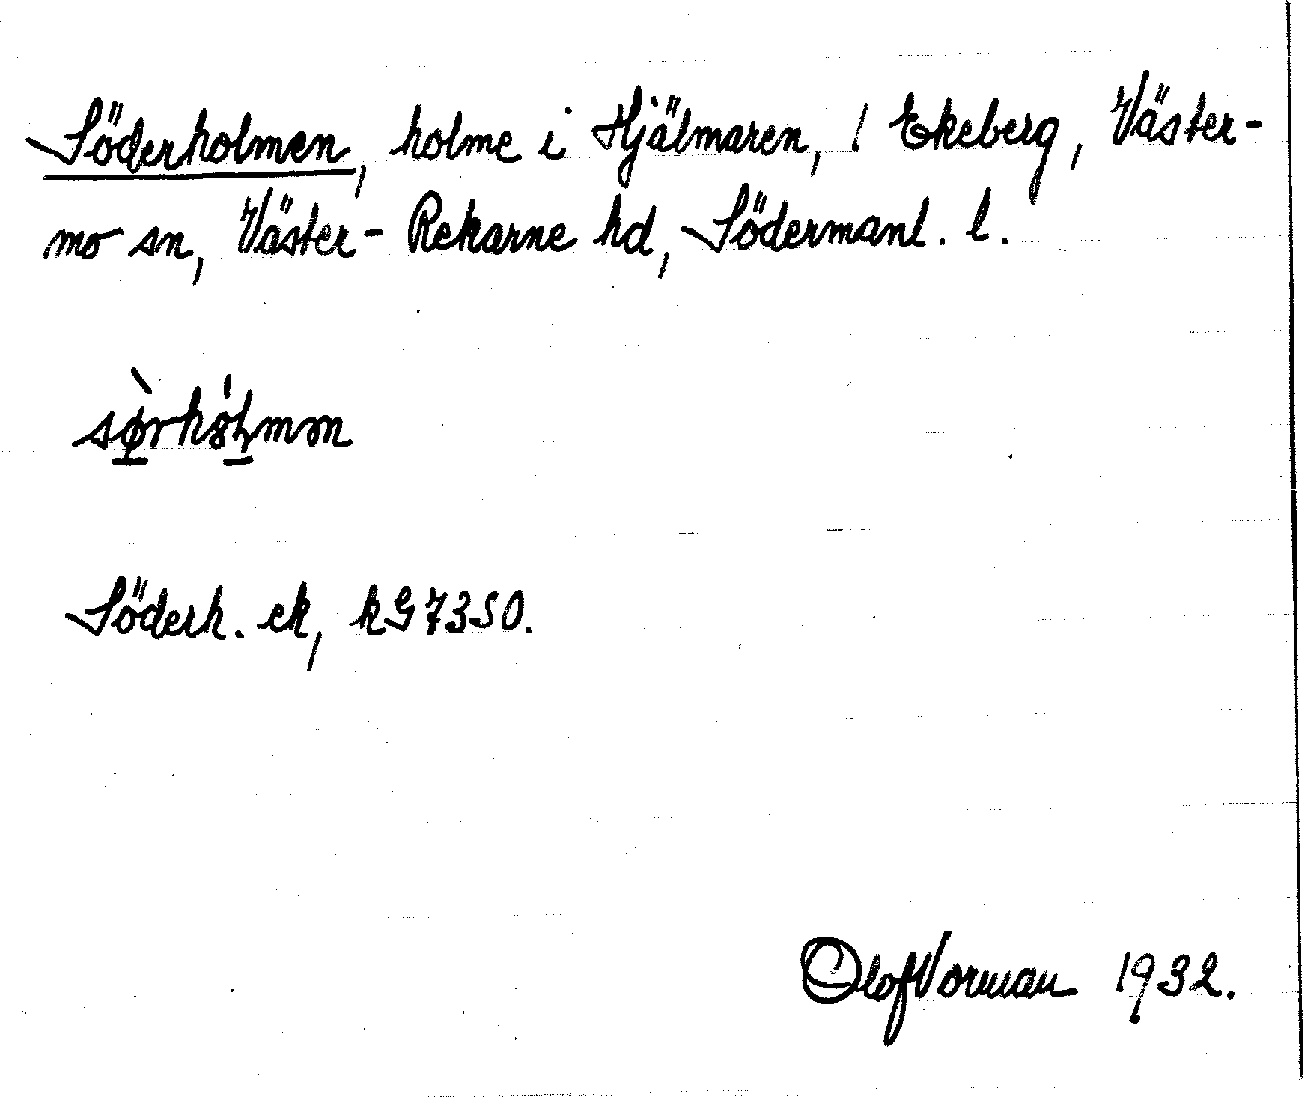 Söderholmen, holme i Hjälmaren, / Ekeberg, Väster-
mo sn, Väster-Rekarne hd, Södermanl. l.
Söderh. ek, kG 7350.
Olof Vorman 1932.